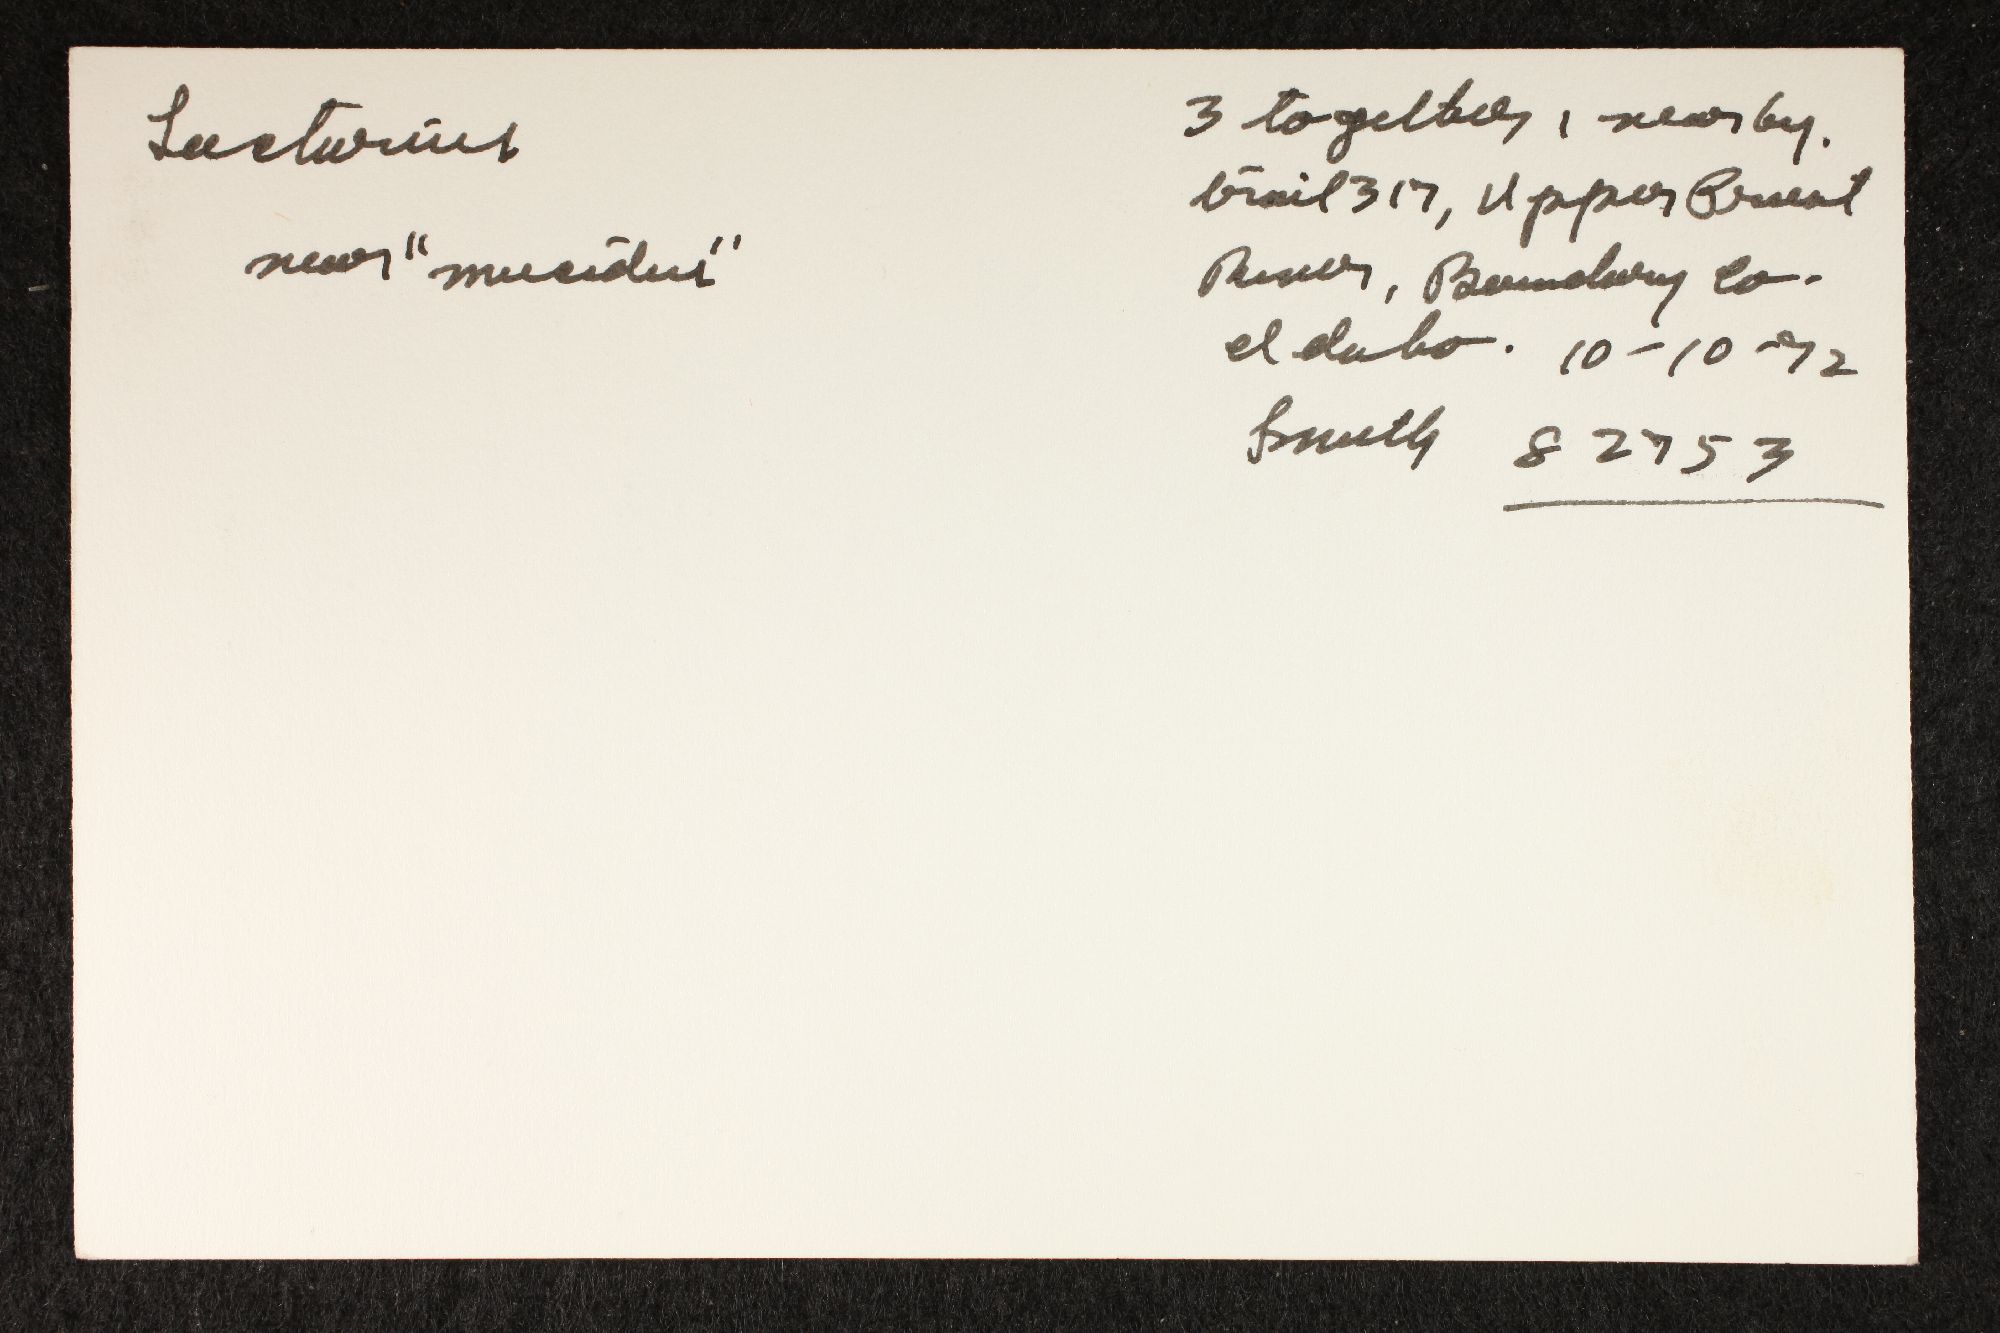 Lactarius
near "mucidus"
3 together, 1 nearby.
trail 317, Upper Priest
River, Boundary Co.
Idaho. 10-10-72
Smith 82753